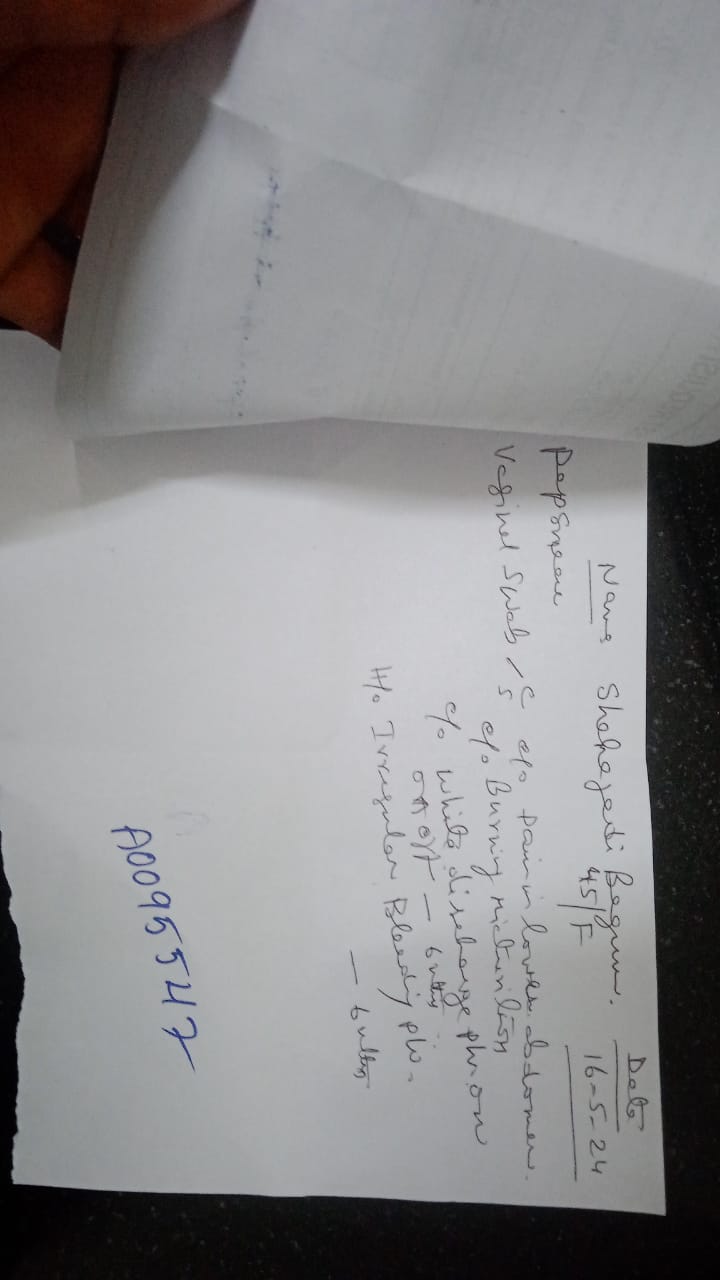 Date
Name Shahajadi Begum. 16-5-24
45/F
Papsmear
Vaginal Swab / C/S c/o Pain in lower abdomen.
c/o Burning micturition
c/o White discharge p/v. on
on off —
H/o Irregular Bleeding p/v.
—
A00955547